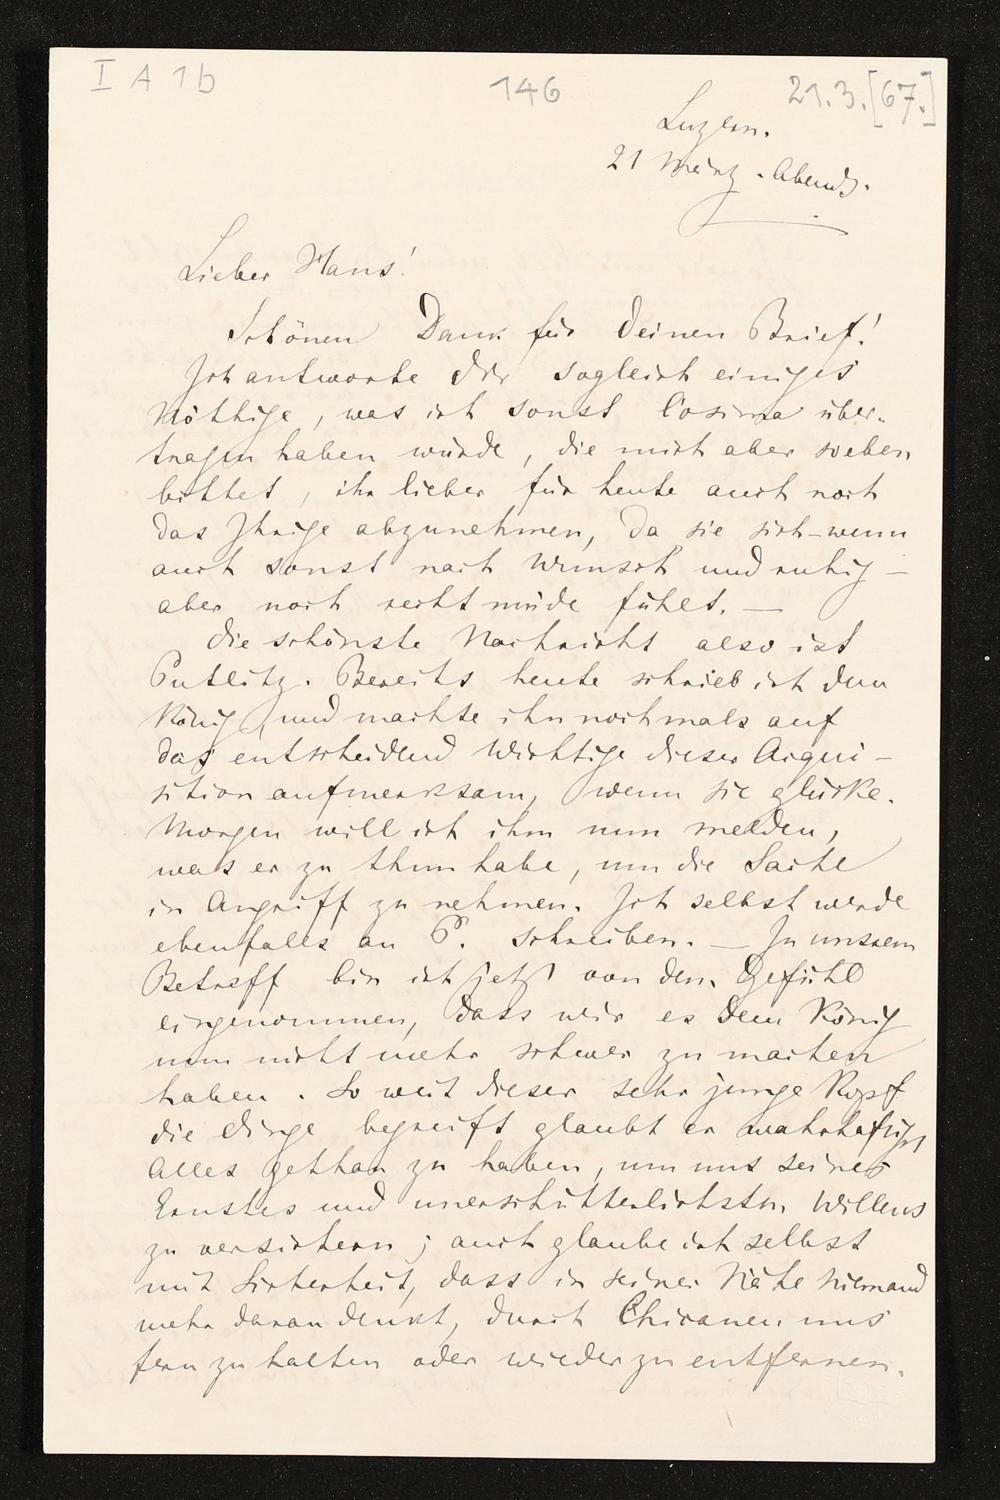 I A 1b
146
21.3.[67.]
Luzern.
21 März. Abends.
Lieber Hans!
Schönen Dank für Deinen Brief!
Ich antworte Dir sogleich einiges
Nöthige, was ich sonst Cosima über-
tragen haben würde, die mich aber soeben
bittet, ihr lieber für heute auch noch
das Ihrige abzunehmen, da sie sich – wenn
auch sonst nach Wunsch und ruhig –
aber noch recht müde fühlt. —
Die schönste Nachricht also ist
Putlitz. Bereits heute schrieb ich dem
König, und machte ihn nochmals auf
das entscheidend Wichtige dieser Acqui-
sition aufmerksam, wenn sie glücke.
Morgen will ich ihm nun melden,
was er zu thun habe, um die Sache
in Angriff zu nehmen. Ich selbst werde
ebenfalls an P. schreiben. — In unsrem
Betreff bin ich jetzt von dem Gefühl
eingenommen, dass wir es dem König
nun nicht mehr schwer zu machen
haben. So weit dieser sehr junge Kopf
die Dinge begreift glaubt er wahrhaftig
Alles gethan zu haben, um uns seines
Ernstes und unerschütterlichsten Willens
zu versichern; auch glaube ich selbst
mit Sicherheit, dass in seiner Nähe Niemand
mehr daran denkt, durch Chicanen uns
fern zu halten oder wieder zu entfernen.